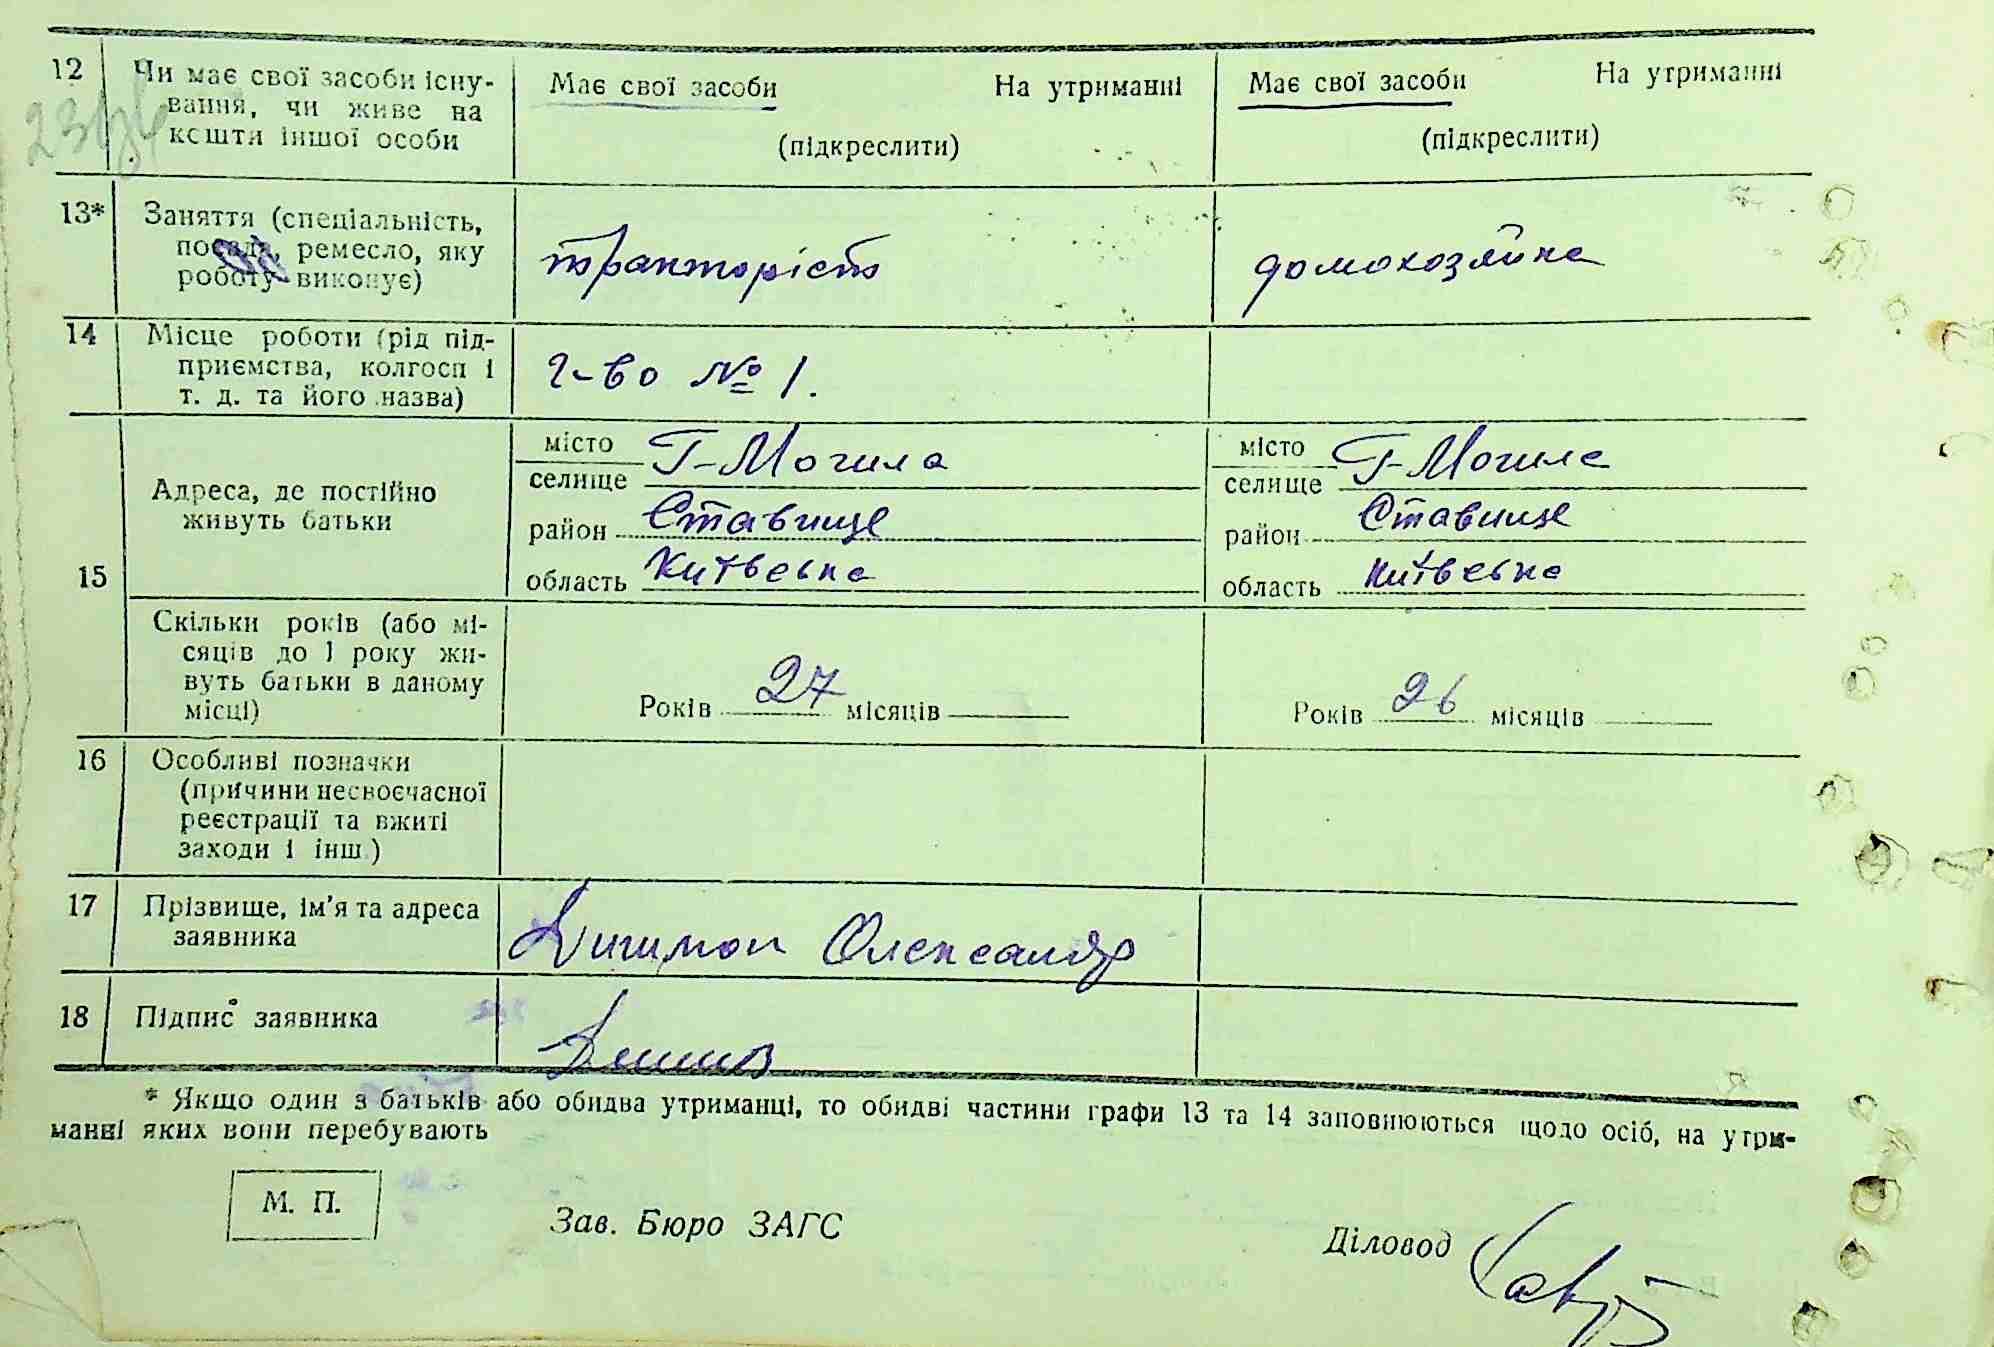 12 Чи має свої засоби існу-
вання, чи живе на
кошти іншої особи
Має свої засоби На утриманні
(підкреслити)
Має свої засоби На утриманні
(підкреслити)
13* Заняття (спеціальність,
посада, ремесло, яку
роботу виконує)
тракторіст
домохозяйка
14 Місце роботи (рід під-
приємства, колгосп і
т. д. та його назва)
г-во № 1.
15 Адреса, де постійно
живуть батьки
місто
селище Г-Могила
район Ставище
область Київська
місто
селище Г-Могила
район Ставище
область Київська
Скільки років (або мі-
сяців до 1 року жи-
вуть батьки в даному
місці)
Років 27 місяців
Років 26 місяців
16 Особливі позначки
(причини несвоєчасної
реєстрації та вжиті
заходи і інш.)
17 Прізвище, ім'я та адреса
заявника
Олександр
18 Підпис заявника
* Якщо один з батьків або обидва утриманці, то обидві частини графи 13 та 14 заповнюються щодо осіб, на утри-
манні яких вони перебувають
М. П.
Зав. Бюро ЗАГС
Діловод